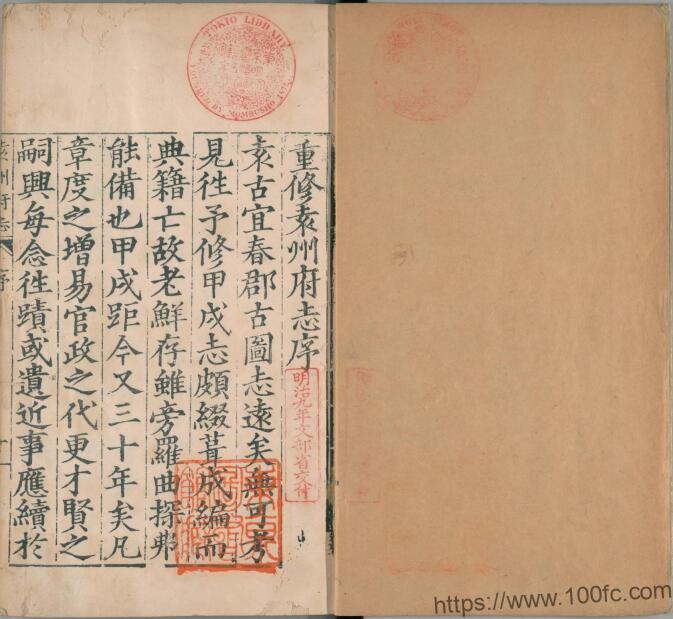 重修袁州府志序
袁古宜春郡古圖志遠矣無可考
見徃予修甲戌志頗綴葺成編而
典籍亡故老鮮存雖旁羅曲探弗
能備也甲戌距今又三十年矣凡
章度之增易官政之代更才賢之
嗣興每念徃蹟或遺近事應續於
袁州府志
序
明治九年文部省交付
TOKIO LIBRARY
https://www.100fc.com